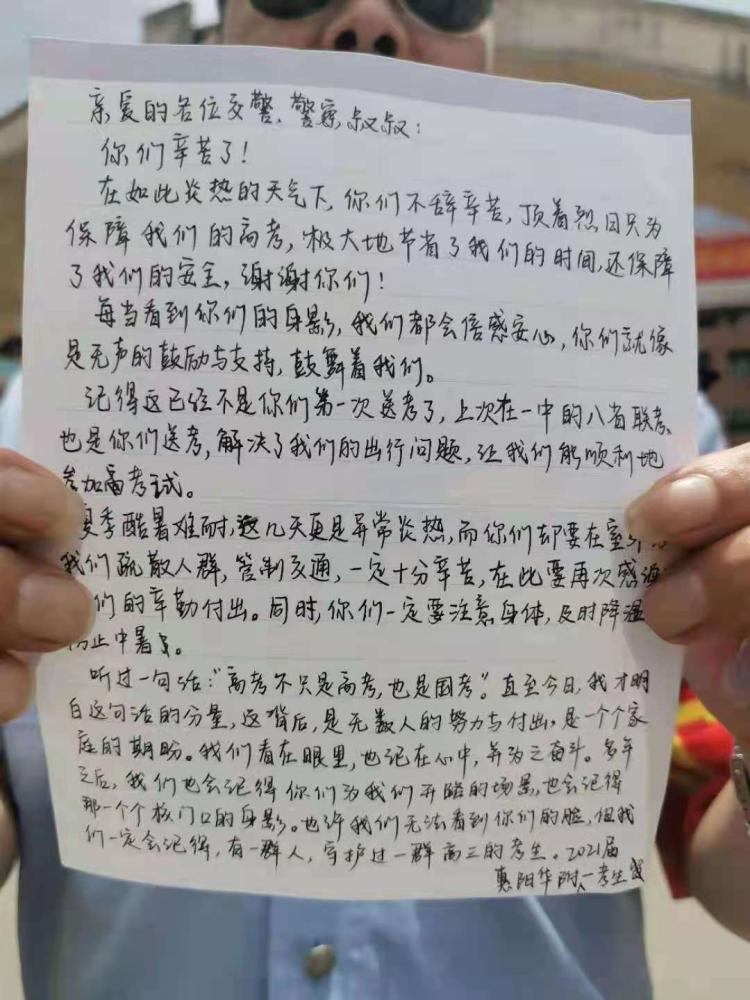 亲爱的各位交警、警察叔叔：
你们辛苦了！
在如此炎热的天气下，你们不辞辛苦，顶着烈日只为
保障我们的高考，极大地节省了我们的时间，还保障
了我们的安全，谢谢你们！
每当看到你们的身影，我们都会倍感安心，你们就像
是无声的鼓励与支持，鼓舞着我们。
记得这已经不是你们第一次送考了，上次在一中的八省联考
也是你们送考，解决了我们的出行问题，让我们能顺利地
参加高考试。
夏季酷暑难耐，这几天更是异常炎热，而你们却要在室外
我们疏散人群，管制交通，一定十分辛苦，在此要再次感谢
们的辛勤付出。同时，你们一定要注意身体，及时降温
防止中暑。
听过一句话：“高考不只是高考，也是国考”。直至今日，我才明
白这句话的分量，这背后，是无数人的努力与付出，是一个个家
庭的期盼。我们看在眼里，也记在心中，并为之奋斗。多年
之后，我们也会记得你们为我们开路的场景，也会记得
那一个个校门口的身影。也许我们无法看到你们的脸，但我
们一定会记得，有一群人，守护过一群高三的考生。2021届
惠阳华附一考生